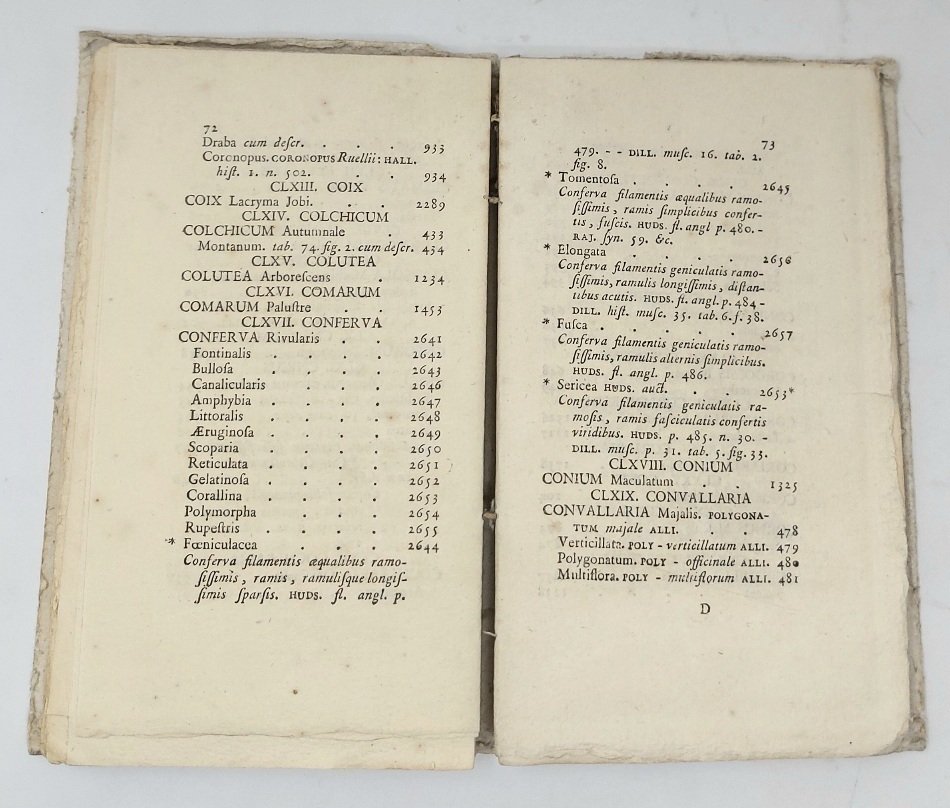 72
Draba cum descr. . . . 933
Coronopus. CORONOPUS Ruellii: HALL.
hiſt. 1. n. 502. . . 934
CLXIII. COIX
COIX Lacryma Jobi. . . 2289
CLXIV. COLCHICUM
COLCHICUM Autumnale . 433
Montanum. tab. 74. fig. 2. cum deſcr. 434
CLXV. COLUTEA
COLUTEA Arboreſcens . 1234
CLXVI. COMARUM
COMARUM Paluſtre . . 1453
CLXVII. CONFERVA
CONFERVA Rivularis . . 2641
Fontinalis . . . . 2642
Bulloſa . . . . 2643
Canalicularis . . . 2646
Amphybia . . . . 2647
Littoralis . . . . 2648
Æruginoſa . . . . 2649
Scoparia . . . . 2650
Reticulata . . . . 2651
Gelatinoſa . . . . 2652
Corallina . . . . 2653
Polymorpha . . . 2654
Rupeſtris . . . . 2655
* Fœniculacea . . . 2644
Conferva filamentis æqualibus ramo-
ſiſſimis, ramis, ramuliſque longiſ-
ſimis ſparſis. HUDS. fl. angl. p.
73
479. - - DILL. muſc. 16. tab. 2.
fig. 8.
* Tomentoſa . . . . 2645
Conferva filamentis æqualibus ramo-
ſiſſimis, ramis ſimplicibus confer-
tis, fuſcis. HUDS. fl. angl p. 480. -
RAJ. ſyn. 59. &c.
* Elongata . . . . 2656
Conferva filamentis geniculatis ramo-
ſiſſimis, ramulis longiſſimis, diſtan-
tibus acutis. HUDS. fl. angl. p. 484 -
DILL. hiſt. muſc. 35. tab. 6. f. 38.
* Fuſca . . . . . 2657
Conferva filamentis geniculatis ramo-
ſiſſimis, ramulis alternis ſimplicibus.
HUDS. fl. angl. p. 486.
* Sericea HUDS. auct. . . 2653*
Conferva filamentis geniculatis ra-
moſis, ramis faſciculatis confertis
viridibus. HUDS. p. 485. n. 30. -
DILL. muſc. p. 31. tab. 5. fig. 33.
CLXVIII. CONIUM
CONIUM Maculatum . . 1325
CLXIX. CONVALLARIA
CONVALLARIA Majalis. POLYGONA-
TUM majale ALLI. . . 478
Verticillata. POLY - verticillatum ALLI. 479
Polygonatum. POLY - officinale ALLI. 480
Multiflora. POLY - multiflorum ALLI. 481
D